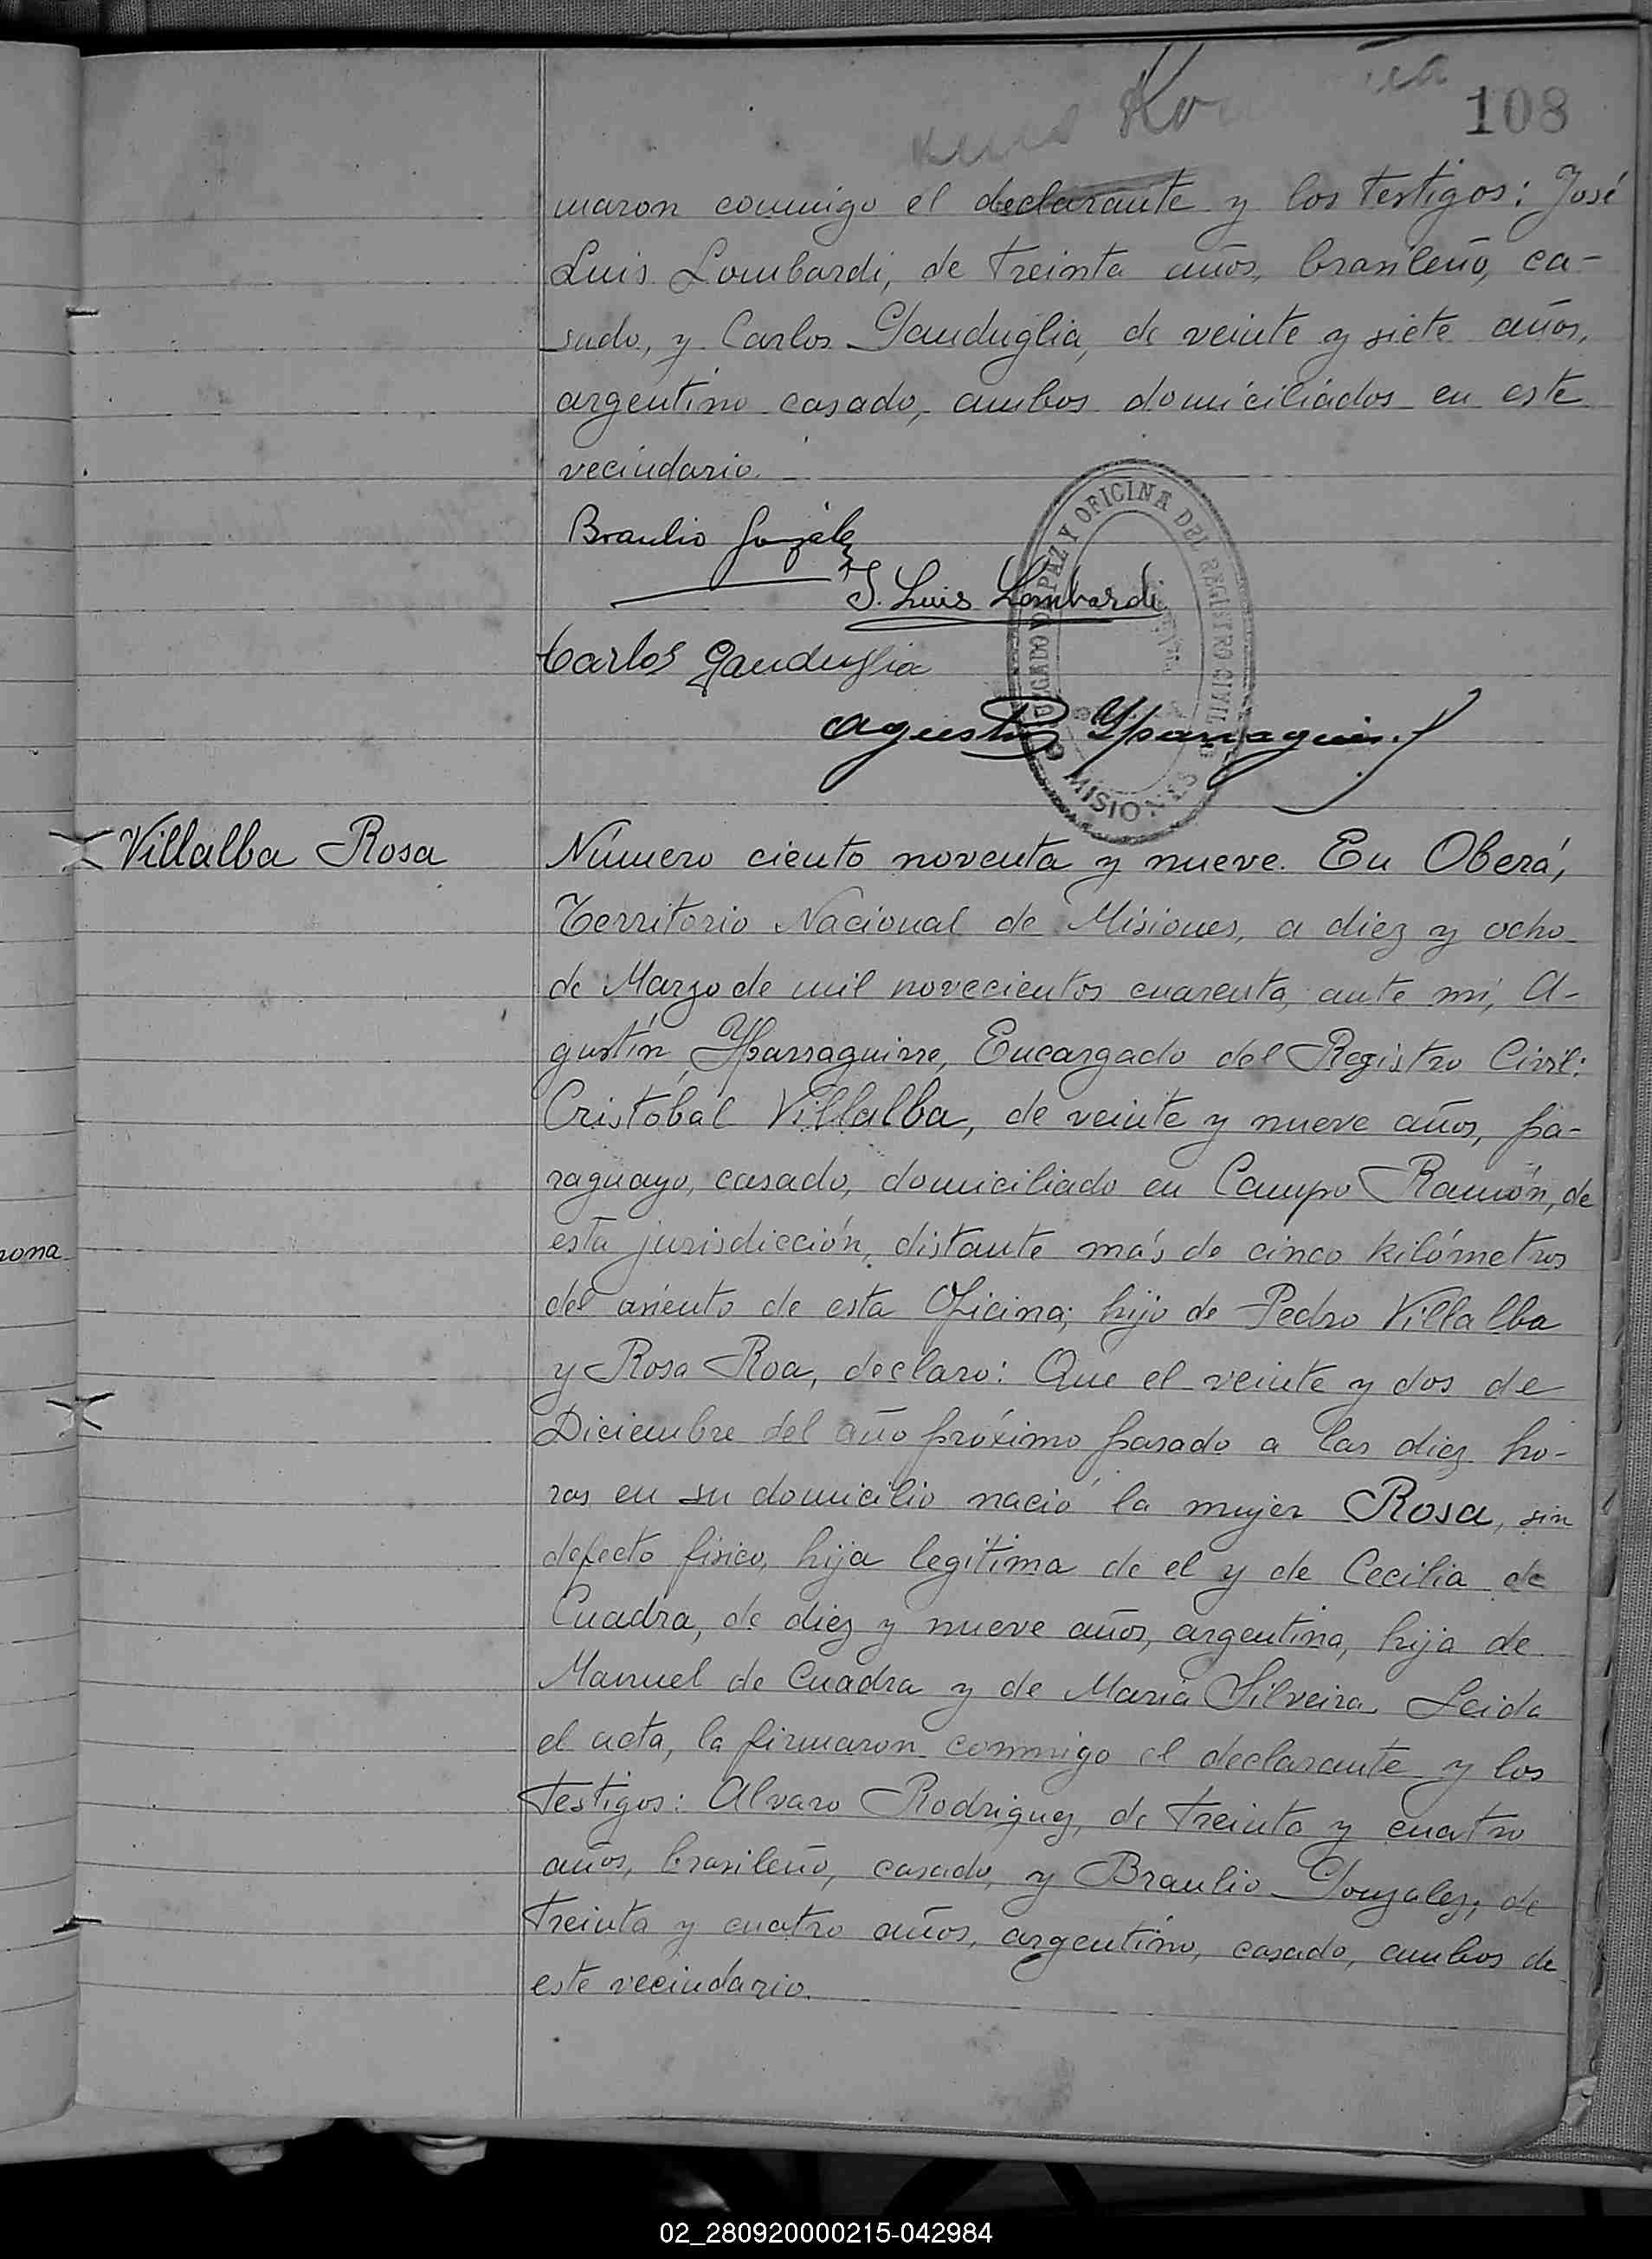 108
maron conmigo el declarante y los testigos: José
Luis Lombardi, de treinta años, brasileño, ca-
sado, y Carlos Ganduglia, de veinte y siete años,
argentino casado, ambos domiciliados en este
vecindario.
Braulio González
J. Luis Lombardi
Carlos Ganduglia
JUZGADO DE PAZ Y OFICINA DEL REGISTRO CIVIL
MISIONES
Agustín Yparraguirre
Villalba Rosa
Número ciento noventa y nueve. En Oberá,
Territorio Nacional de Misiones, a diez y ocho
de Marzo de mil novecientos cuarenta, ante mi, A-
gustín Yparraguirre, Encargado del Registro Civil:
Cristóbal Villalba, de veinte y nueve años, pa-
raguayo, casado, domiciliado en Campo Ramón, de
esta jurisdicción, distante más de cinco kilómetros
rona
del asiento de esta Oficina; hijo de Pedro Villalba
y Rosa Roa, declaro: Que el veinte y dos de
Diciembre del año próximo pasado a las diez ho-
ras en su domicilio nació la mujer Rosa, sin
defecto fisico, hija legitima de el y de Cecilia de
Cuadra, de diez y nueve años, argentina, hija de
Manuel de Cuadra y de Maria Silveira. Leida
el acta, la firmaron conmigo el declarante y los
testigos: Alvaro Rodriguez, de treinta y cuatro
años, brasileño, casado, y Braulio Gonzalez, de
treinta y cuatro años, argentino, casado, ambos de
este vecindario.
02_280920000215-042984